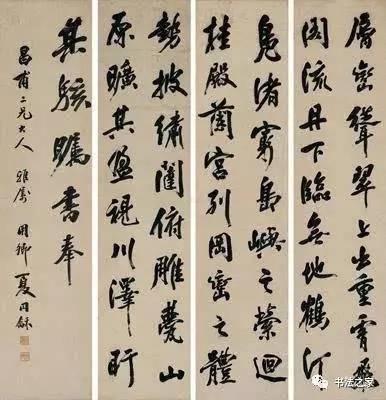 層巒聳翠上出重霄飛
閣流丹下臨無地鶴汀
鳧渚窮島嶼之縈迴
桂殿蘭宮列岡巒之體
勢披繡闥俯雕甍山
原曠其盈視川澤盱
其駭矚書奉
昌甫二兄大人 雅屬 用卿夏同龢
书法之家